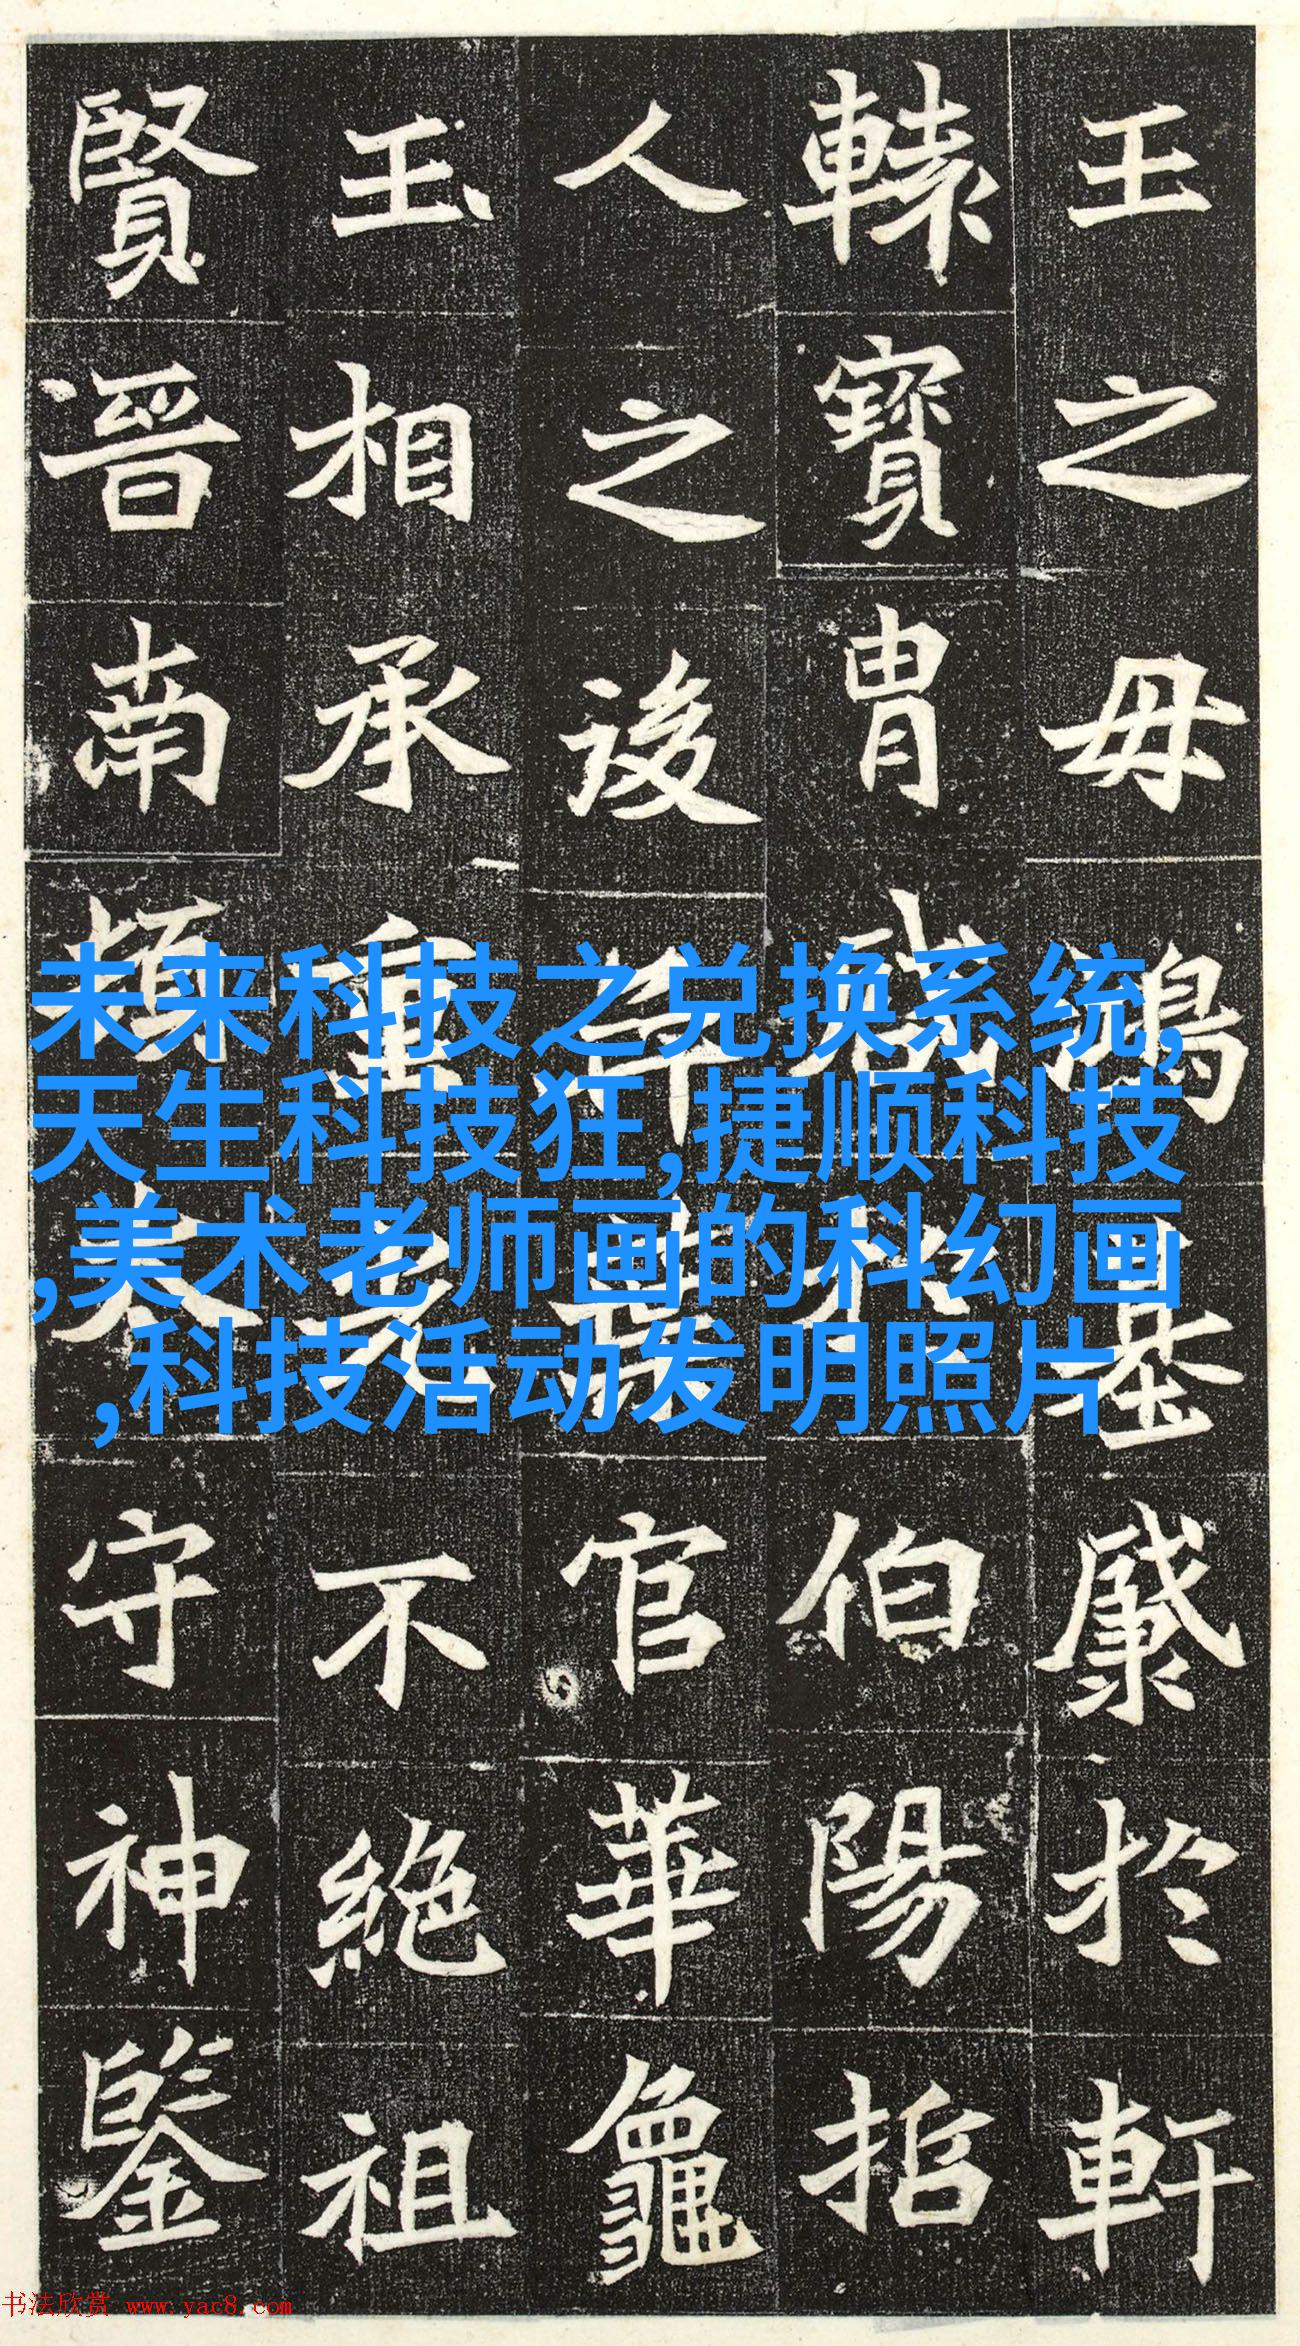 王之母鴻基感於軒
轅寶胄
伯陽指
人之後
官華龜
玉相承重
不絕祖
賢晉南
守神鑒
未来科技之兑换系统,
天生科技狂,捷顺科技
,美术老师画的科幻画
,科技活动发明照片
书法欣赏 www.yac8.com